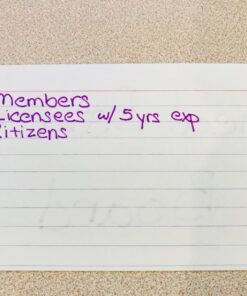 Members
Licensees w/ 5 yrs exp
Citizens